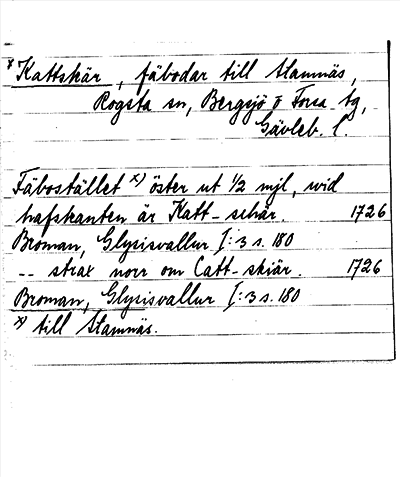 x Kattskär, fäbodar till Hamnäs,
Rogsta sn, Bergsjö o Forsa tg,
Gävleb. l.
Fäbostället x) öster ut 1/2 mjl, wid
hafskanten är Katt-schär. 1726
Broman, Glysisvallur I:3 s. 180
-- strax norr om Catt-skiär. 1726
Broman, Glysisvallur I:3 s. 180
x) till Hamnäs.